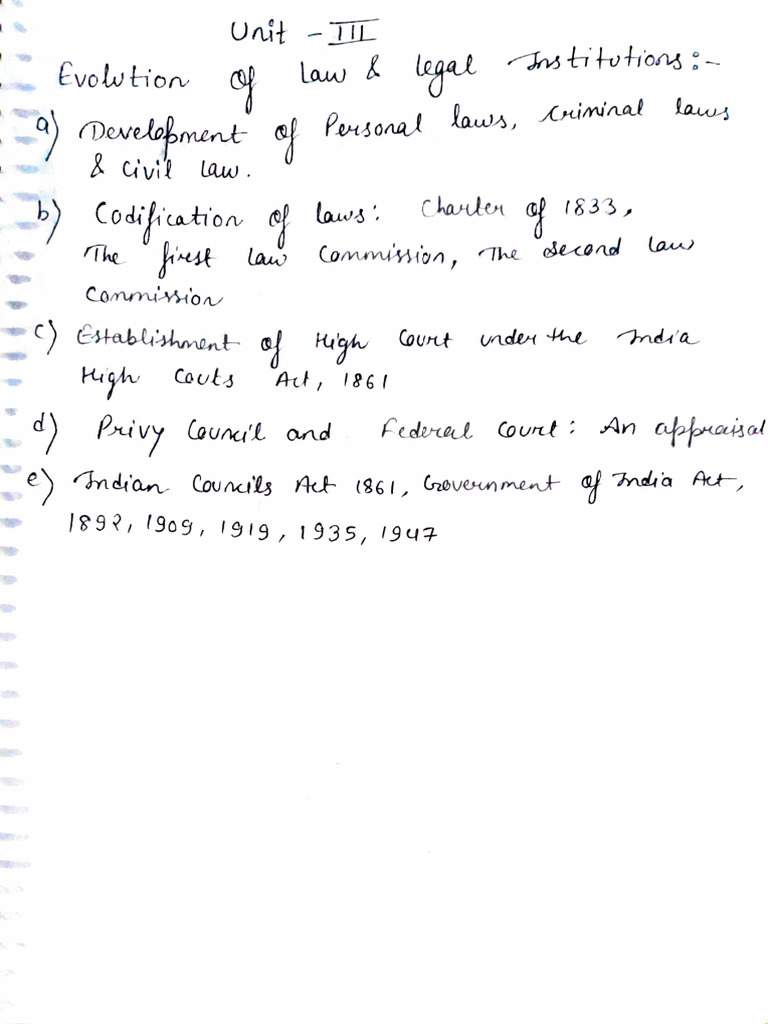 Unit - III
Evolution of Law & Legal Institutions:-
a) Development of Personal laws, criminal laws
& civil law.
b) Codification of laws: Charter of 1833,
The first Law Commission, The second law
Commission
c) Establishment of High Court under the India
High Couts Act, 1861
d) Privy Council and Federal Court: An appraisal
e) Indian Councils Act 1861, Government of India Act,
1892, 1909, 1919, 1935, 1947